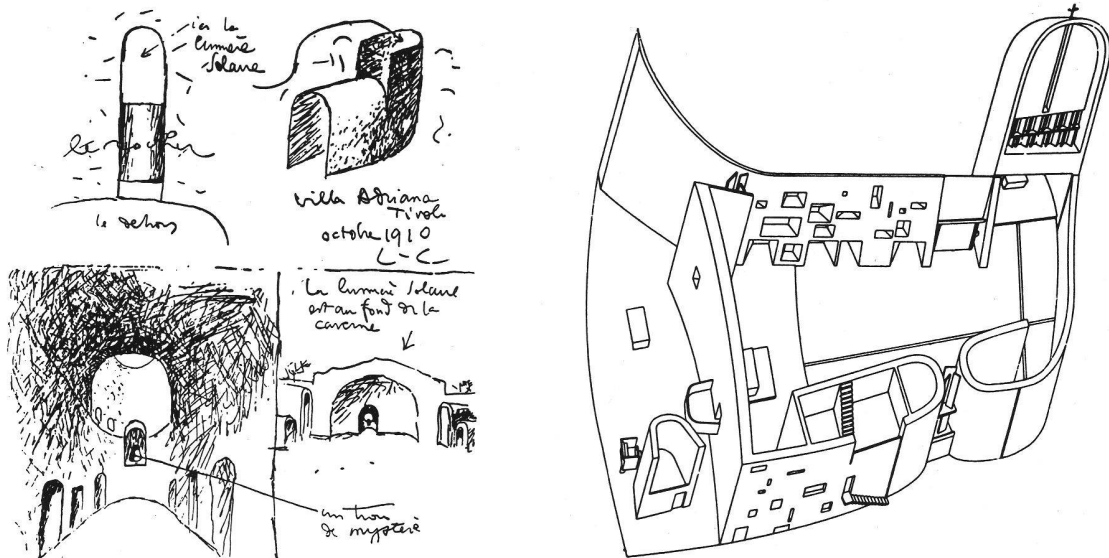 ici la
lumière
solaire
le rocher
le dehors
villa Adriana
Tivoli
octobre 1910
L-C
La lumière solaire
est au fond de la
caverne
un trou
de mystère